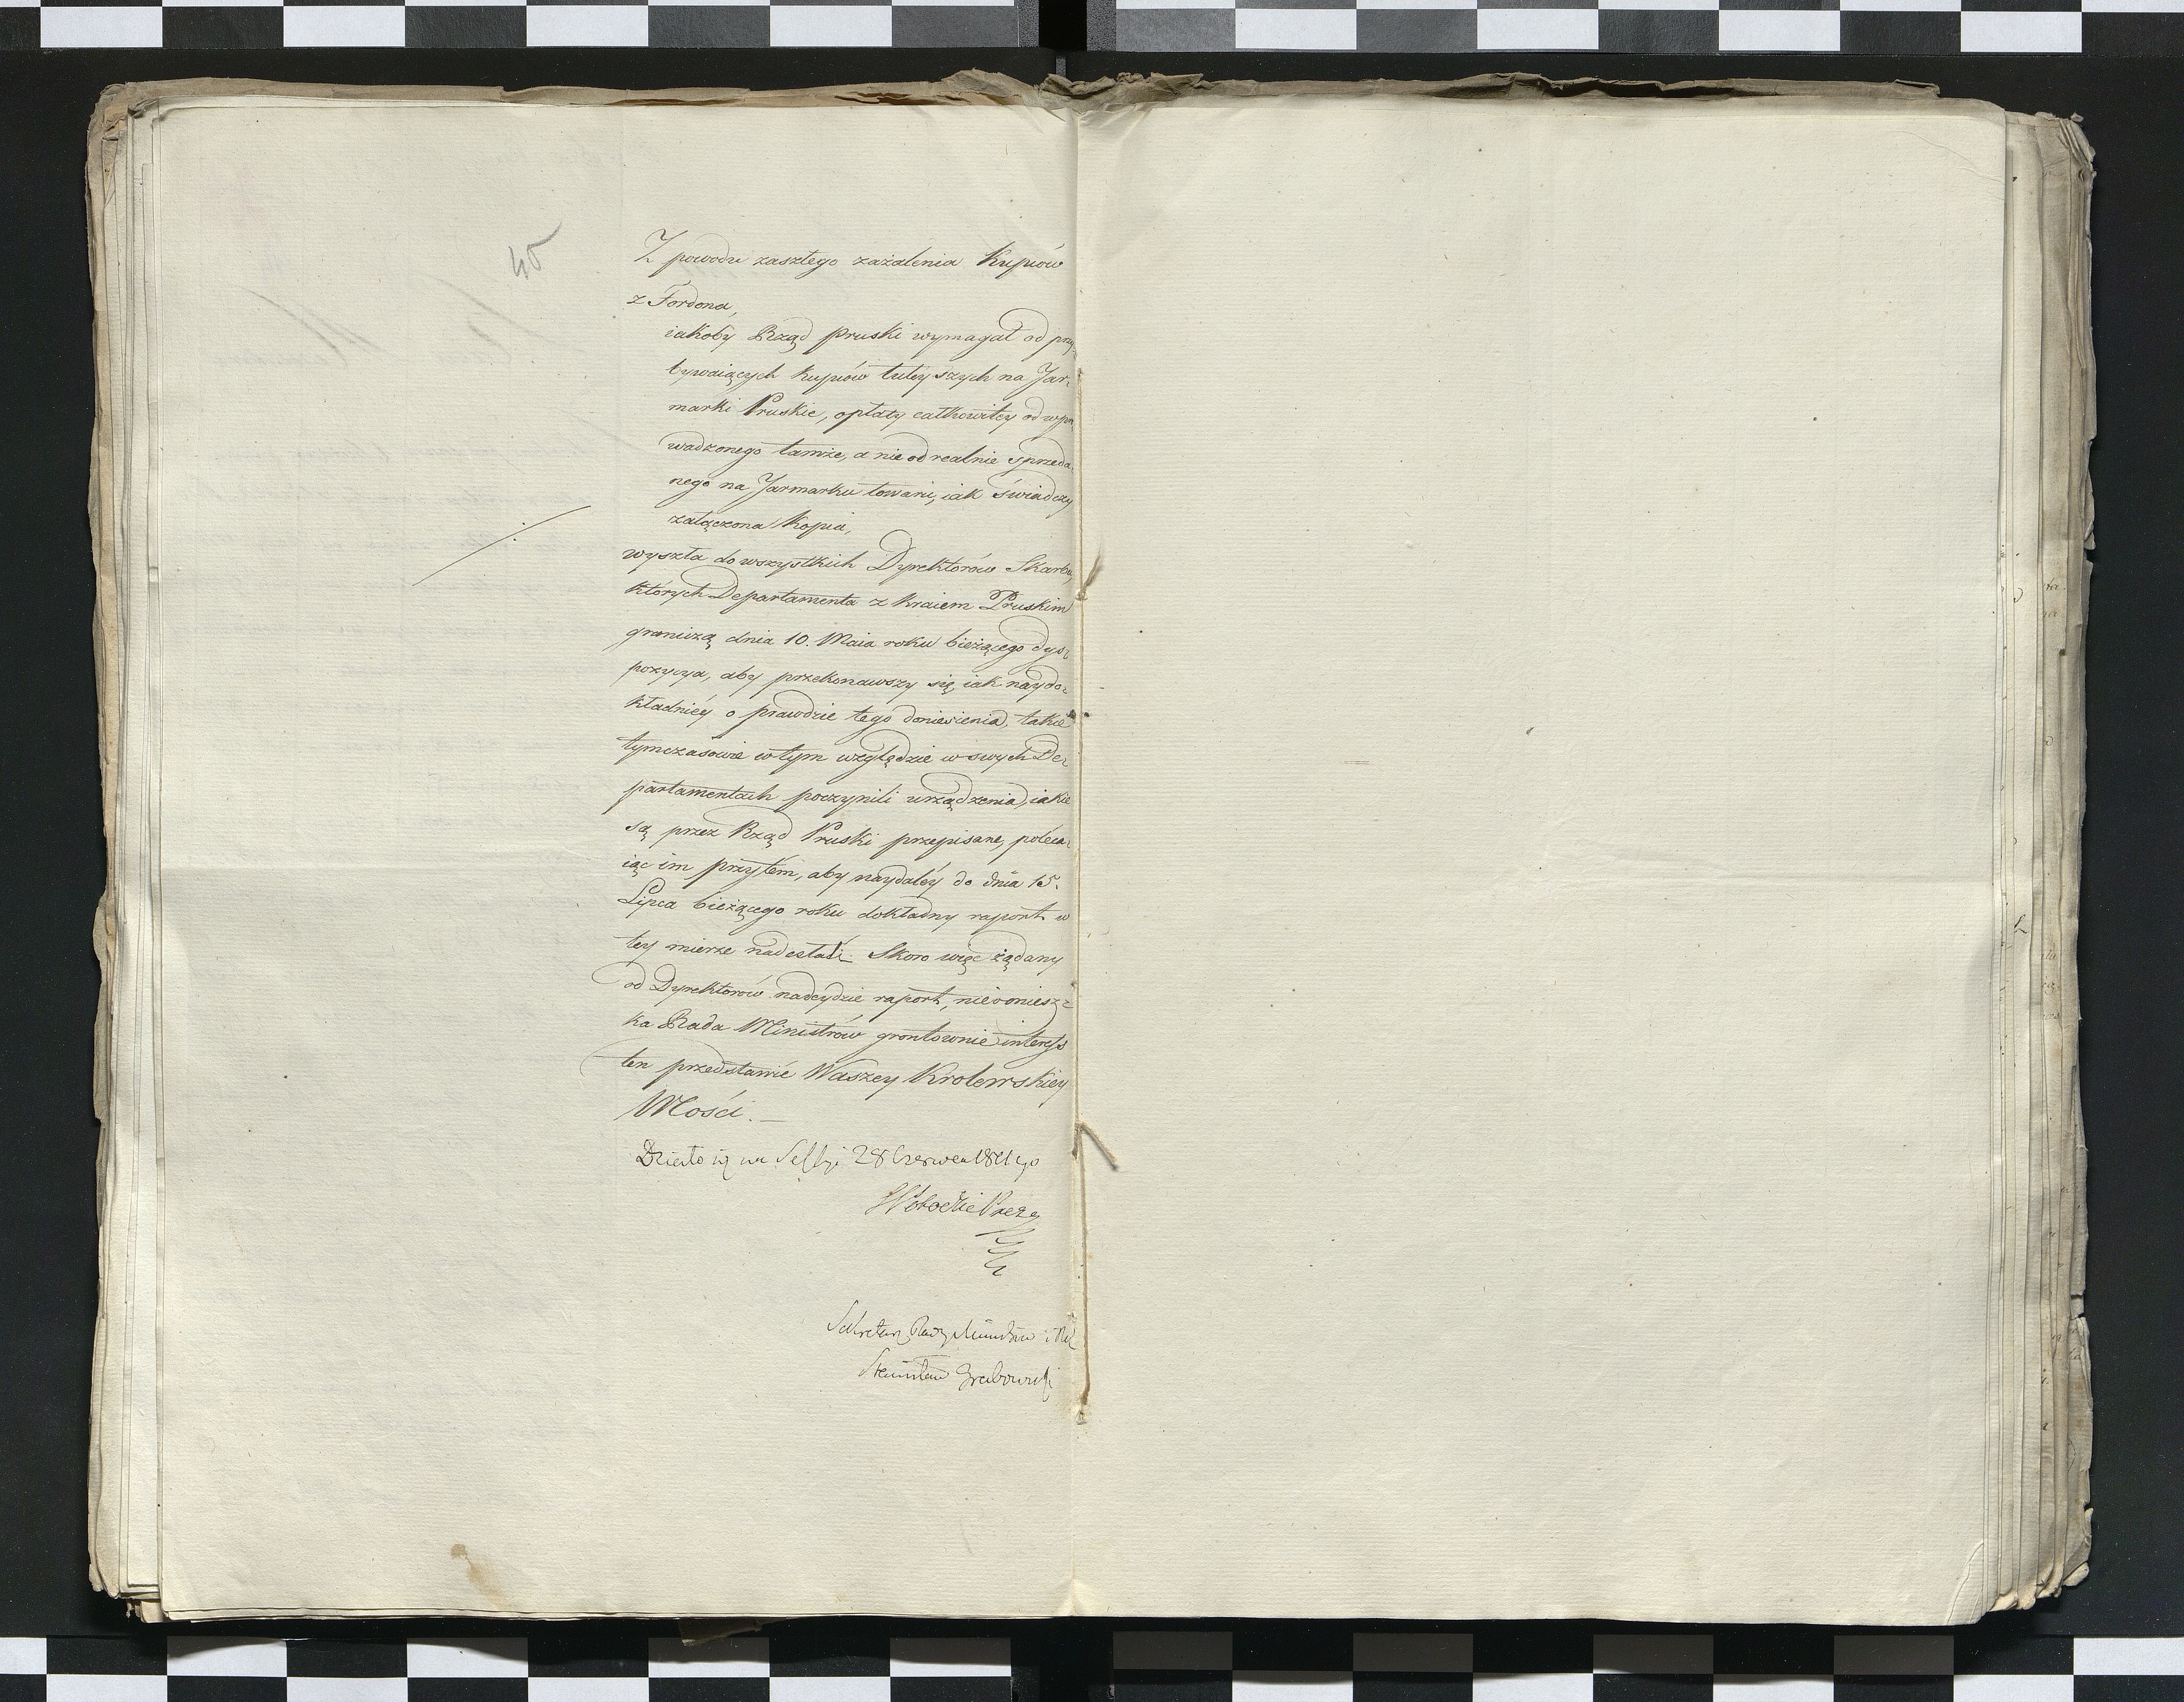 45
Z powodu zaszłego zażalenia Kupców
z Fordona,
iakoby Rząd pruski wymagał od przy¬
bywaiących kupców tuteyszych na Jar¬
marki Pruskie, opłaty całkowitey od wpro¬
wadzonego tamże, a nie od realnie sprzeda¬
nego na Jarmarku towaru, iak świadczy
załączona Kopia,
wyszła do wszystkich Dyrektorów Skarbu,
których Departamenta z kraiem Pruskim
graniczą dnia 10. Maia roku bieżącego dys¬
pozycya, aby przekonawszy się iak naydo¬
kładniey o prawdzie tego doniesienia, takie
tymczasowie w tym względzie w swych De¬
partamentach poczynili urządzenia, iakie
są przez Rząd Pruski przepisane, poleca¬
iąc im przytém, aby naydaléy do dnia 15.
Lipca bieżącego roku dokładny raport w
tey mierze nadesłali. Skoro więc żądany
od Dyrektorów nadeydzie raport, nieomiesz¬
ka Rada Ministrów grontownie interess
ten przedstawić Waszey Krolewskiey
Mości. —
Działo się na Sessyi 28 Czerwca 1811 go
Potocki Prezes
Sekretarz Rady Ministrów i
Stanisław Grabowski